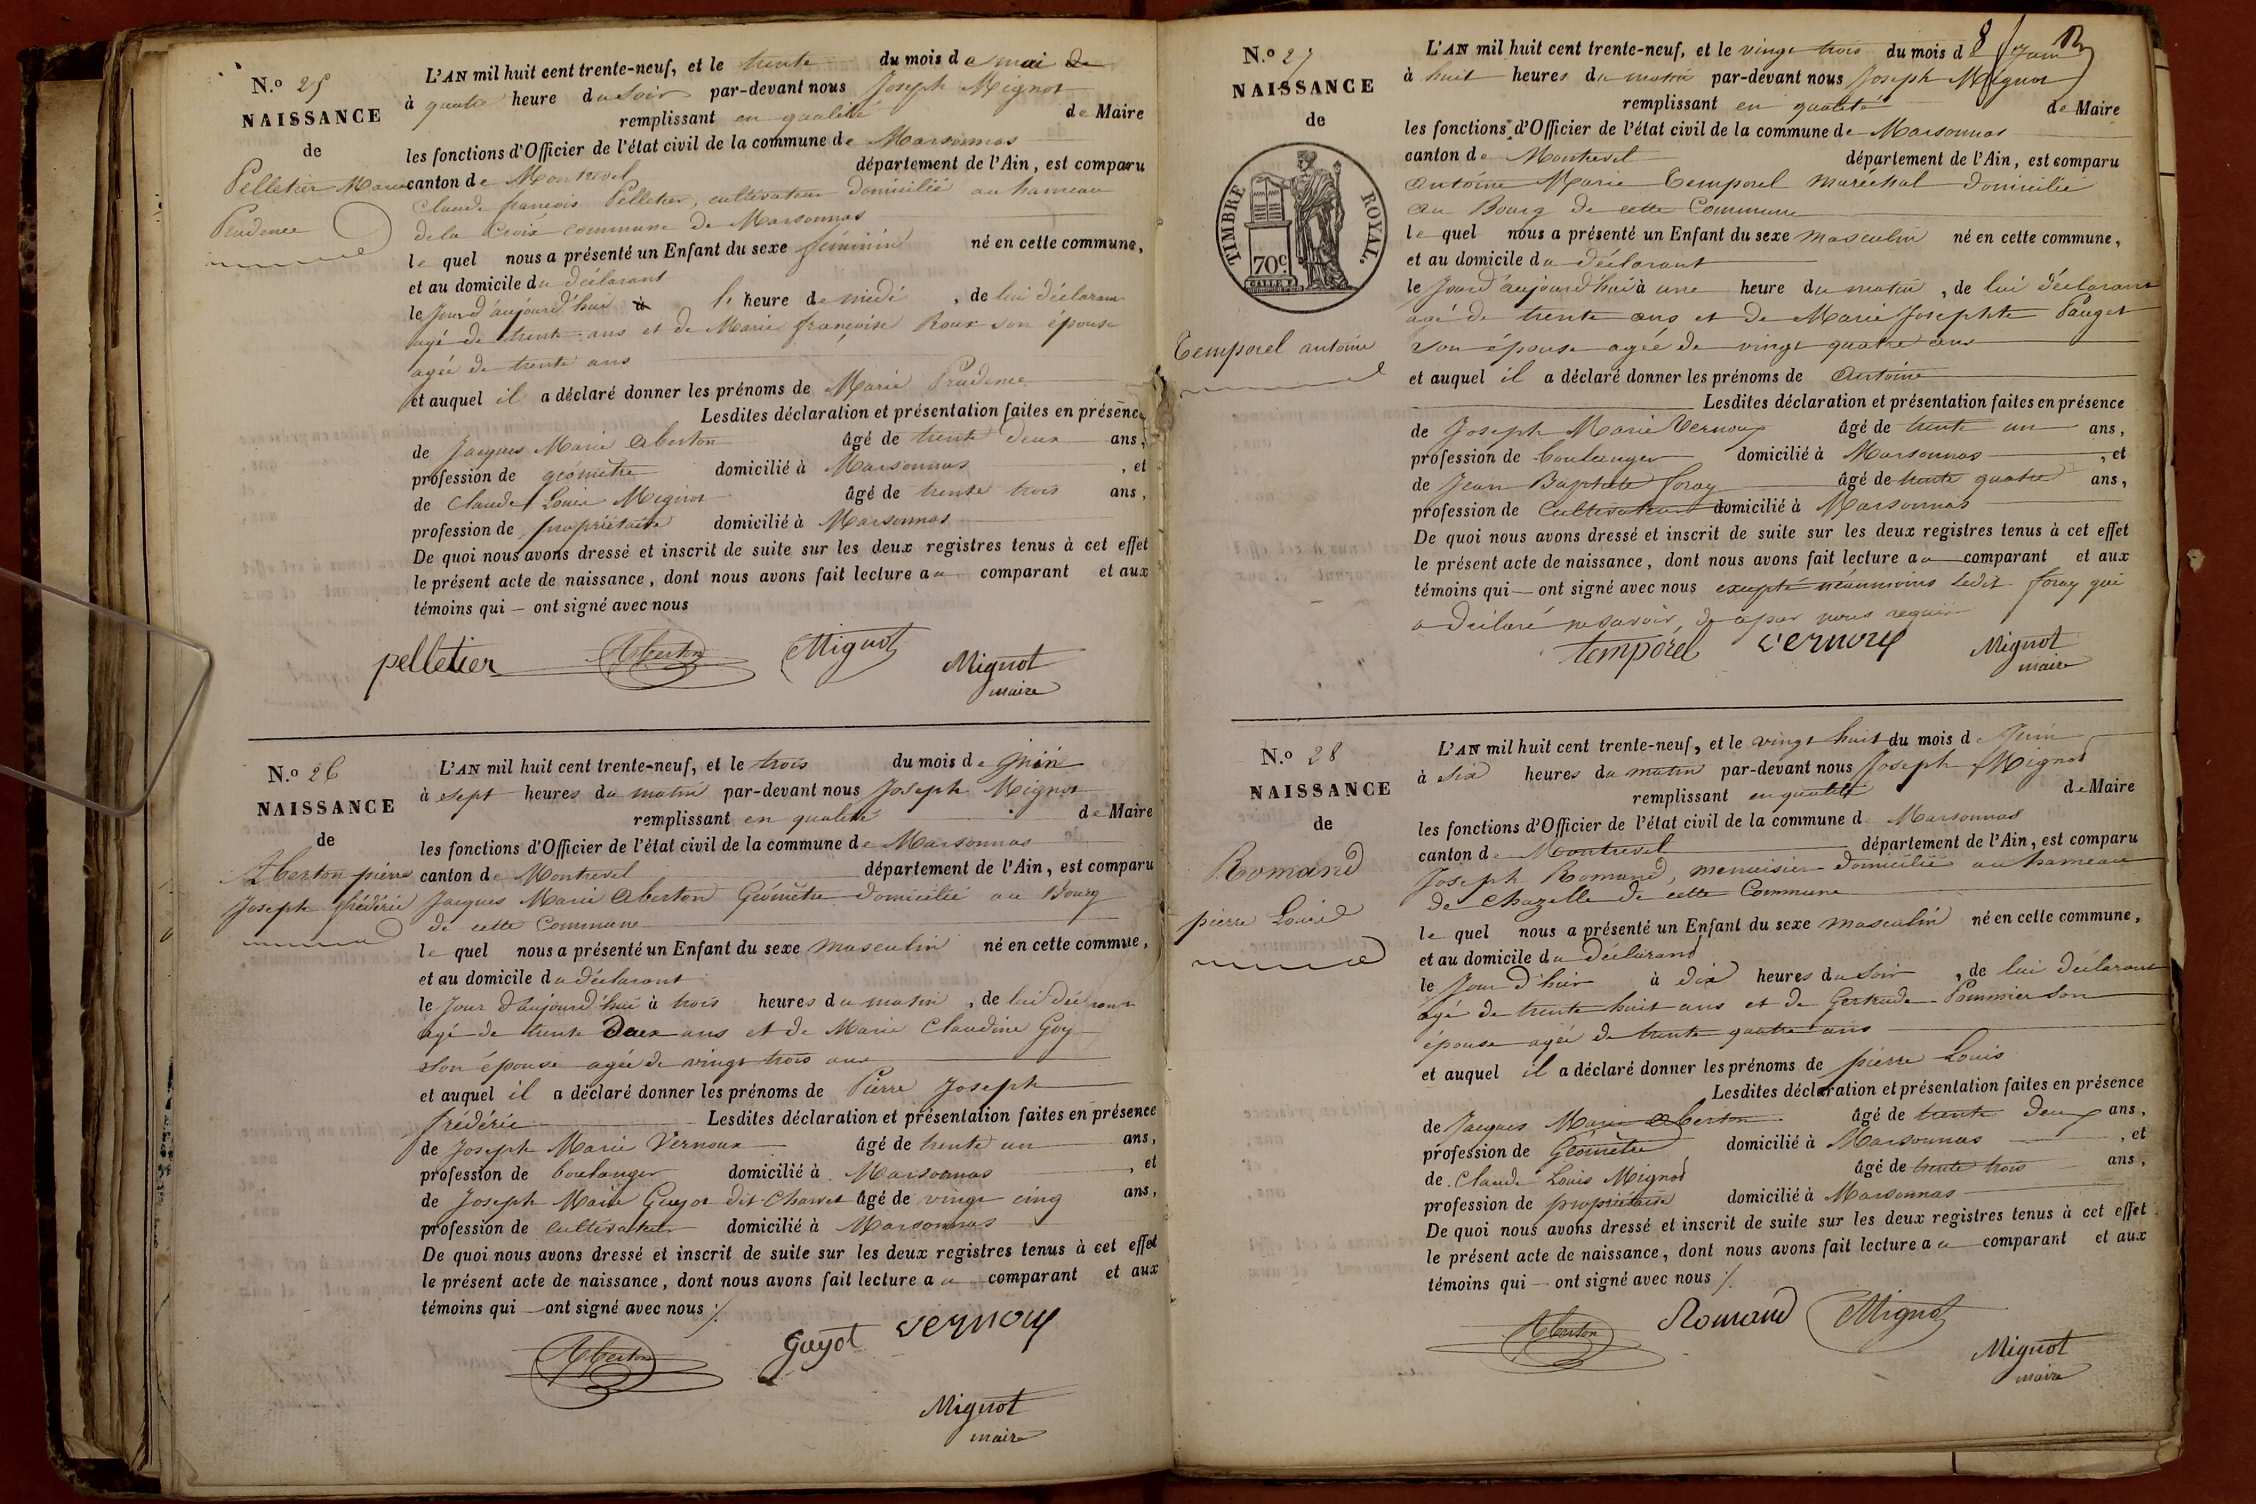 N.o 25
NAISSANCE
de
Pelletier Marie
Prudence
L'AN mil huit cent trente-neuf, et le trente du mois de mai
à quatre heure du soir par-devant nous Joseph Mignot
remplissant en qualité de Maire
les fonctions d'Officier de l'état civil de la commune de Marsonnas
canton de Montrevel département de l'Ain, est comparu
Claude françois Pelletier, cultivateur domicilié au hameau
de la Croix commune de Marsonnas
le quel nous a présenté un Enfant du sexe féminin né en cette commune,
et au domicile du déclarant
le Jour d'aujourd'hui à l' heure de midi, de lui déclarant
agé de trente ans et de Marie françoise Roux son épouse
agée de trente ans
et auquel il a déclaré donner les prénoms de Marie Prudence
Lesdites déclaration et présentation faites en présence
de Jacques Marie Aberton âgé de trente deux ans,
profession de géomètre domicilié à Marsonnas, et
de Claude Louis Mignot âgé de trente trois ans,
profession de propriétaire domicilié à Marsonnas
De quoi nous avons dressé et inscrit de suite sur les deux registres tenus à cet effet
le présent acte de naissance, dont nous avons fait lecture au comparant et aux
témoins qui — ont signé avec nous
pelletier Aberton CMignot Mignot
maire
N.o 26
NAISSANCE
de
Aberton pierre
Joseph frédéric
L'AN mil huit cent trente-neuf, et le trois du mois de Juin
à sept heures du matin par-devant nous Joseph Mignot
remplissant en qualité de Maire
les fonctions d'Officier de l'état civil de la commune de Marsonnas
canton de Montrevel département de l'Ain, est comparu
Jacques Marie Aberton Géomètre domicilié au Bourg
de cette Commune
le quel nous a présenté un Enfant du sexe masculin né en cette commune,
et au domicile du déclarant
le Jour d'aujourd'hui à trois heures du matin, de lui déclarant
agé de trente Deux ans et de Marie Claudine Goy
son épouse agée de vingt trois ans
et auquel il a déclaré donner les prénoms de Pierre Joseph
frédéric Lesdites déclaration et présentation faites en présence
de Joseph Marie Vernoux âgé de trente un ans,
profession de boulanger domicilié à Marsonnas, et
de Joseph Marie Guyot dit Charvet âgé de vingt cinq ans,
profession de cultivateur domicilié à Marsonnas
De quoi nous avons dressé et inscrit de suite sur les deux registres tenus à cet effet
le présent acte de naissance, dont nous avons fait lecture au comparant et aux
témoins qui — ont signé avec nous ./.
Aberton Guyot vernoux
Mignot
maire
8
N.o 27
NAISSANCE
de
TIMBRE ROYAL.
70c
Temporel antoine
L'AN mil huit cent trente-neuf, et le vingt trois du mois de Juin
à huit heures du matin par-devant nous Joseph Mignot
remplissant en qualité de Maire
les fonctions d'Officier de l'état civil de la commune de Marsonnas
canton de Montrevel département de l'Ain, est comparu
Antoine Marie Temporel maréchal domicilié
au Bourg de cette Commune
le quel nous a présenté un Enfant du sexe masculin né en cette commune,
et au domicile du déclarant
le Jour d'aujourd'hui à une heure du matin, de lui déclarant
agé de trente ans et de Marie Josephte Pauget
son épouse agée de vingt quatre ans
et auquel il a déclaré donner les prénoms de Antoine
Lesdites déclaration et présentation faites en présence
de Joseph Marie Vernoux âgé de trente un ans,
profession de boulanger domicilié à Marsonnas, et
de Jean Baptiste foray âgé de trente quatre ans,
profession de Cultivateur domicilié à Marsonnas
De quoi nous avons dressé et inscrit de suite sur les deux registres tenus à cet effet
le présent acte de naissance, dont nous avons fait lecture au comparant et aux
témoins qui — ont signé avec nous excepté néanmoins ledit foray qui
a déclaré ne savoir, de ce par nous requis
temporel vernoux Mignot
maire
N.o 28
NAISSANCE
de
Romand
pierre Louis
L'AN mil huit cent trente-neuf, et le vingt huit du mois d Juin
à six heures du matin par-devant nous Joseph Mignot
remplissant en qualité de Maire
les fonctions d'Officier de l'état civil de la commune d Marsonnas
canton de Montrevel département de l'Ain, est comparu
Joseph Romand, menuisier domicilié au hameau
de Chazelle de cette Commune
le quel nous a présenté un Enfant du sexe masculin né en cette commune,
et au domicile du déclarant
le Jour d'hier à dix heures du soir, de lui déclarant
agé de trente huit ans et de Gertrude Pommier son
épouse agée de trente quatre ans
et auquel il a déclaré donner les prénoms de pierre Louis
Lesdites déclaration et présentation faites en présence
de Jacques Marie Aberton âgé de trente deux ans,
profession de Géomètre domicilié à Marsonnas, et
de Claude Louis Mignot âgé de trente trois ans,
profession de propriétaire domicilié à Marsonnas
De quoi nous avons dressé et inscrit de suite sur les deux registres tenus à cet effet
le présent acte de naissance, dont nous avons fait lecture au comparant et aux
témoins qui — ont signé avec nous ./.
Aberton Romand CMignot
Mignot
maire